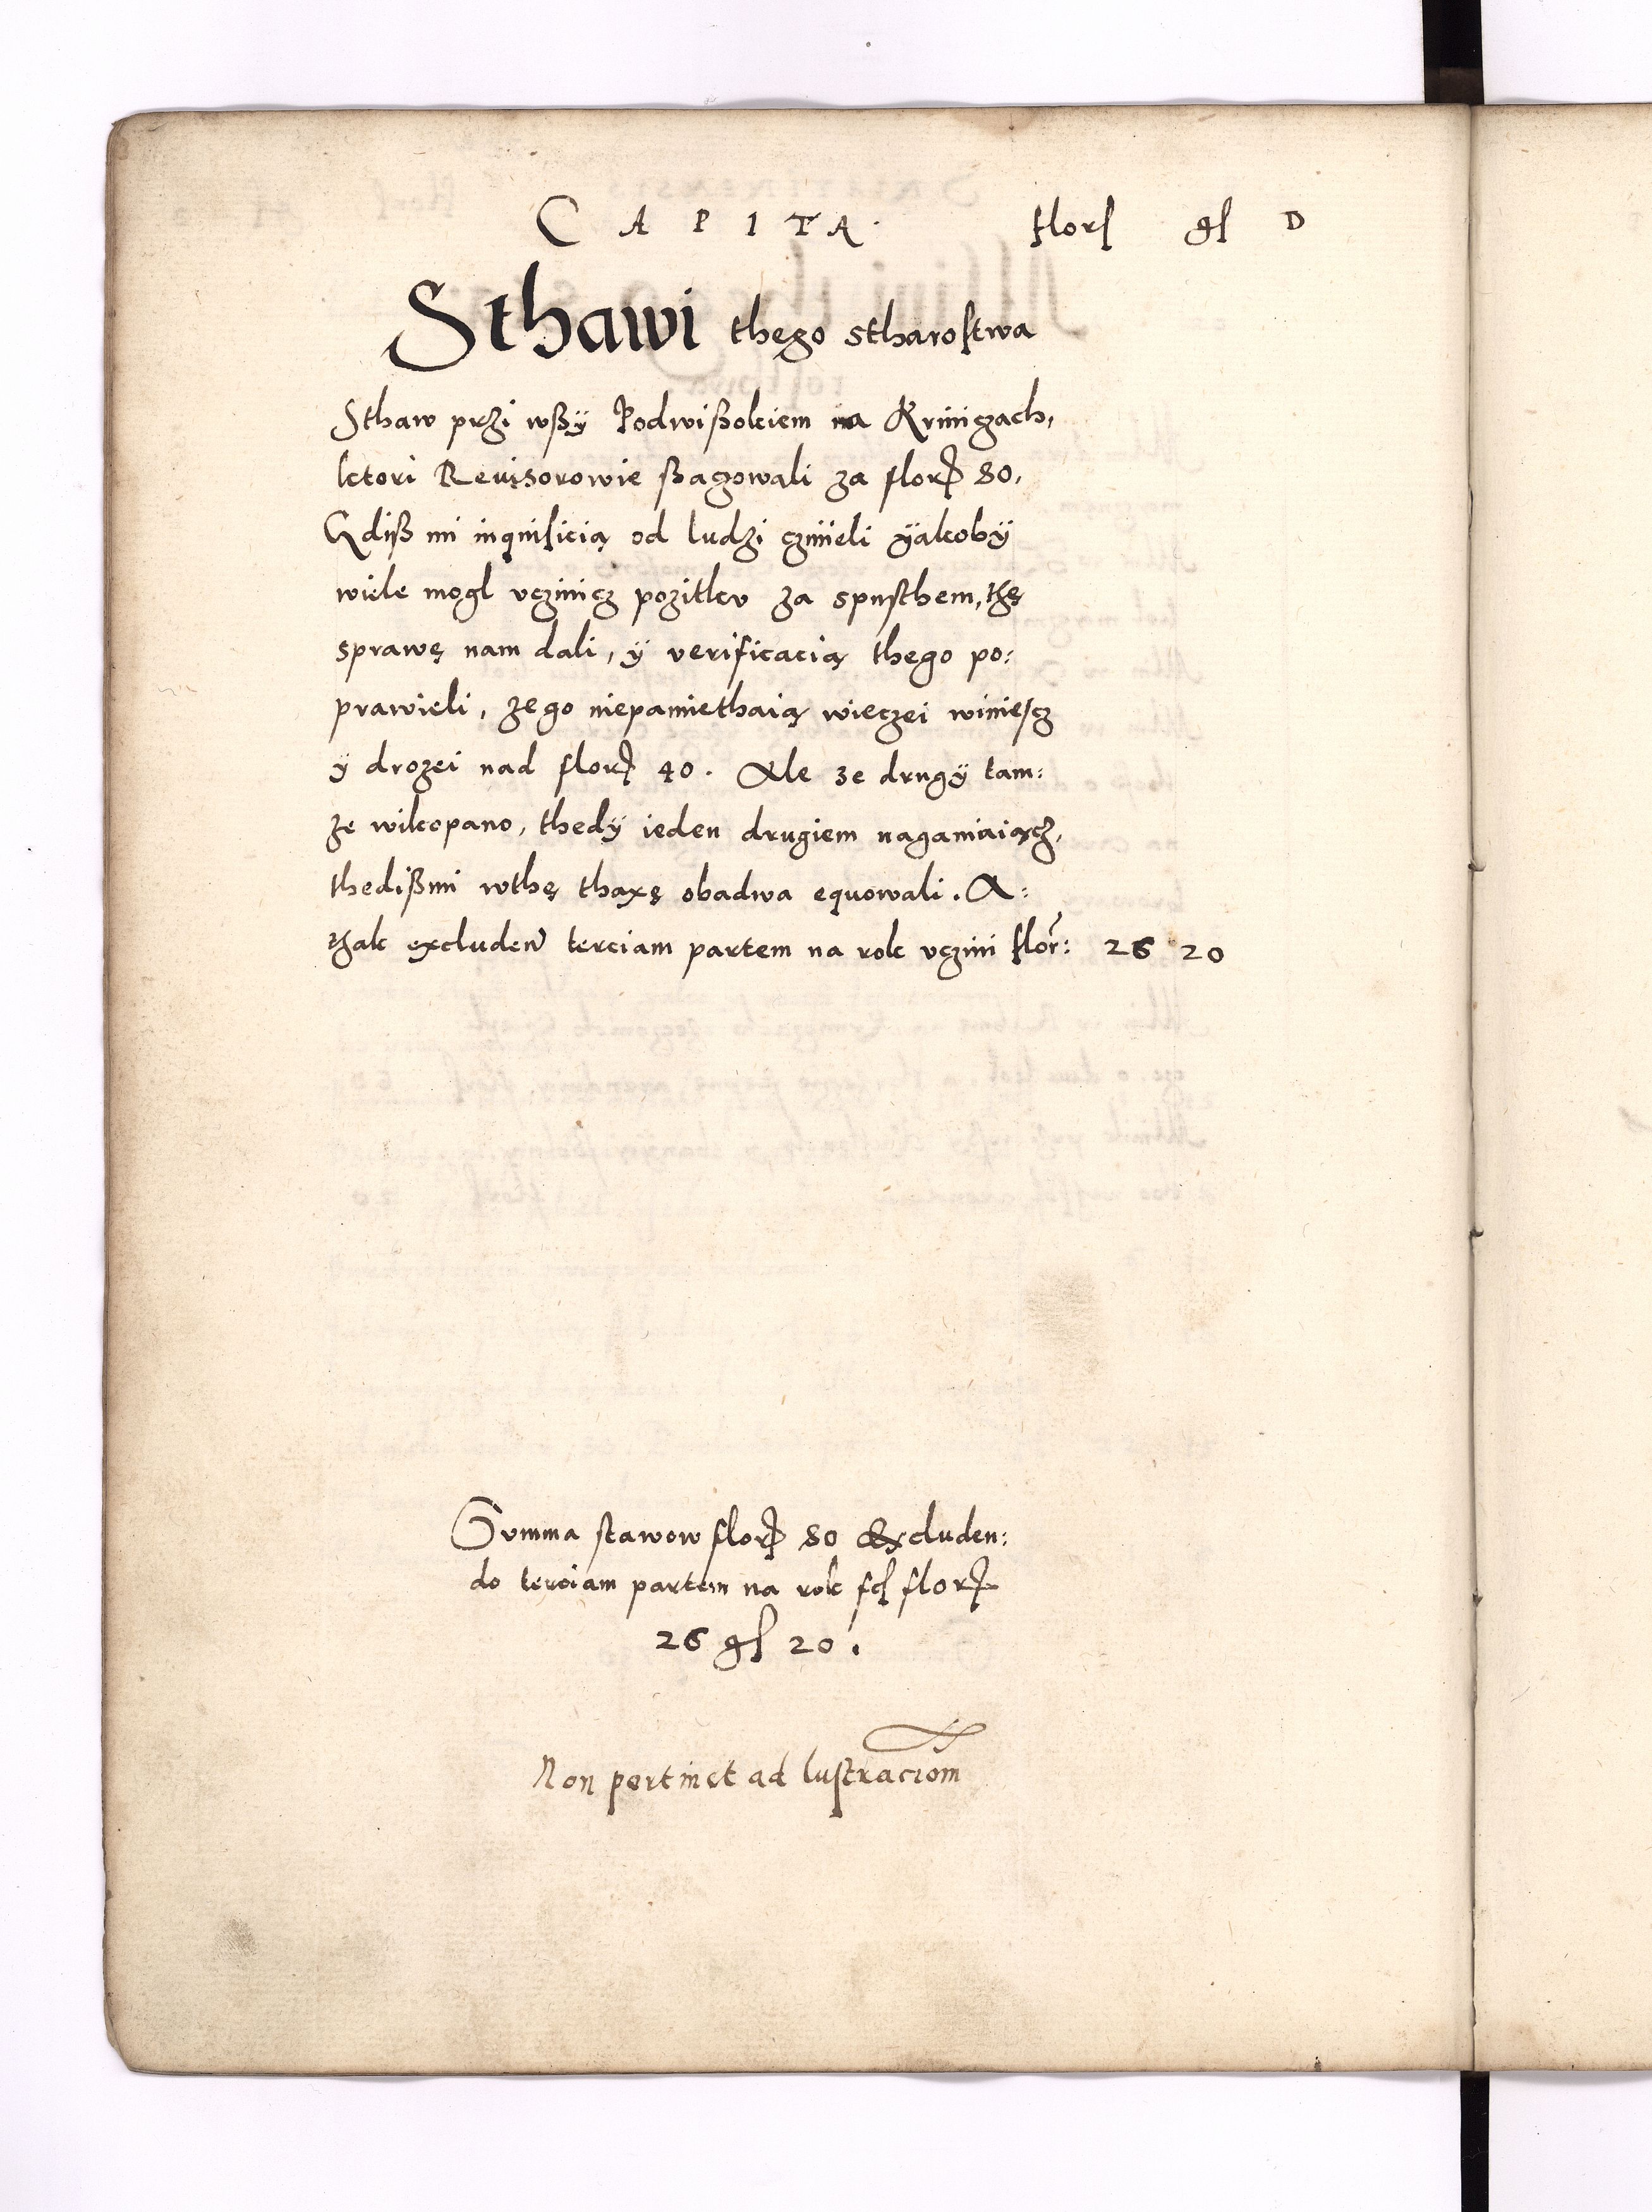 CAPITA. flor₎ gſ D
Sthawi thego stharoſtwa
Sthaw przi wßÿ Podwißokiem na Kriniczach,
ktori Reuisorowie ßagowali za flor₎ 80,
Gdiß mi inquiſicią od ludzi czinieli ÿakobÿ
wiele mogl vczinicz pozitkv za spusthem, thę
sprawę nam dali, ÿ verificacią thego po:
prawieli, ze go niepamiethaią wieczei winieſcz
ÿ drozei nad flor₎ 40. Ale ze drugÿ tam:
ze wikopano, thedÿ ieden drugiem naganiaiącz,
thedißmi wthę thaxę obadwa equowali. A:
thak excluden̄ terciam partem na rok vczini flor̄: 26 20
Summa stawow flor₎ 80 Excluden:
do terciam partem na rok fcſ flor₎
26 gſ 20.
Non pertinet ad luſtraciom̄